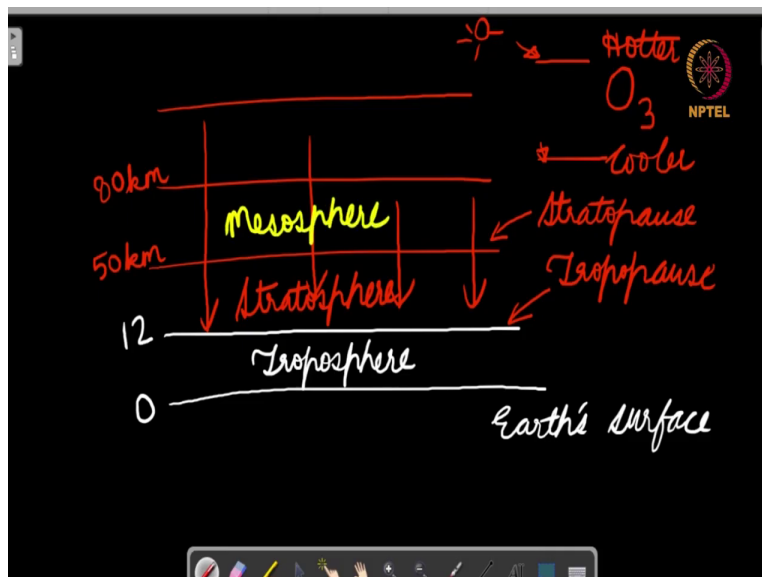 Hotter
O3
NPTEL
Cooler
80km
Mesosphere
Stratopause
50km
Stratosphere
Tropopause
12
Troposphere
0
Earth's surface